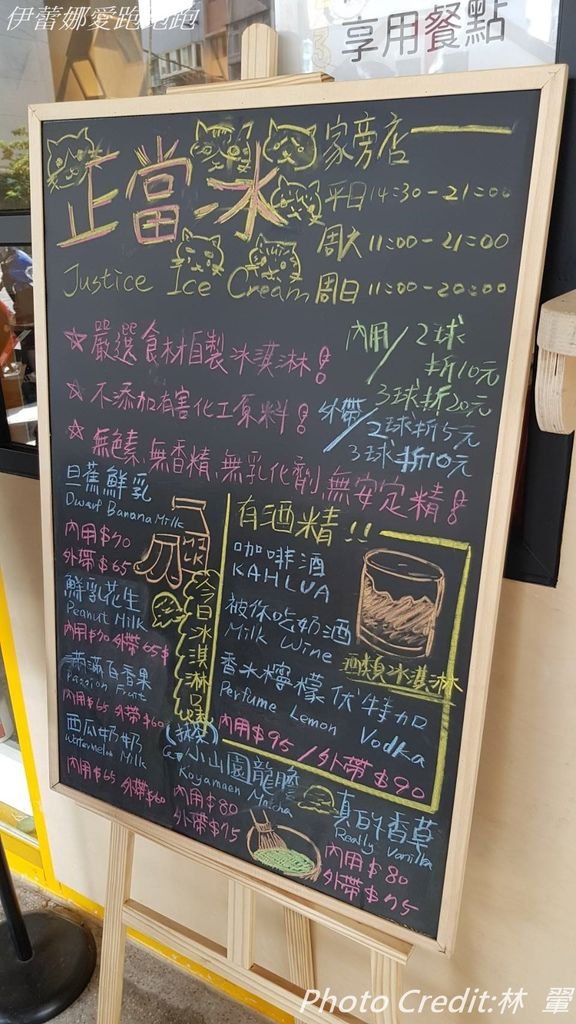 伊蕾娜愛跑跑跑
享用餐點
正當冰
家旁店
平日14:30-21:00
周六11:00-21:00
周日11:00-20:00
Justice Ice Cream
☆嚴選食材自製冰淇淋!
☆不添加有害化工原料!
☆無色素,無香精,無乳化劑,無安定精!
內用/2球折10元
3球折20元
外帶/2球折5元
3球折10元
旦蕉鮮乳
Dwarf Banana Milk
內用$70
外帶$65
MILK
鮮乳花生
Peanut Milk
內用$70 外帶65$
滿滿百香果
Passion Fruit
內用$65 外帶$60
西瓜奶奶
Watermelon Milk
內用$65 外帶$60
今日冰淇淋口味
有酒精!!
咖啡酒
KAHLUA
被你吃奶酒
Milk Wine
香水檸檬伏特加
Perfume Lemon Vodka
酒類冰淇淋
內用$95/外帶$90
(抹茶)
小山園龍膽
Koyamaen Matcha
內用$80
外帶$75
真的香草
Really Vanilla
內用$80
外帶$75
Photo Credit:林 翬